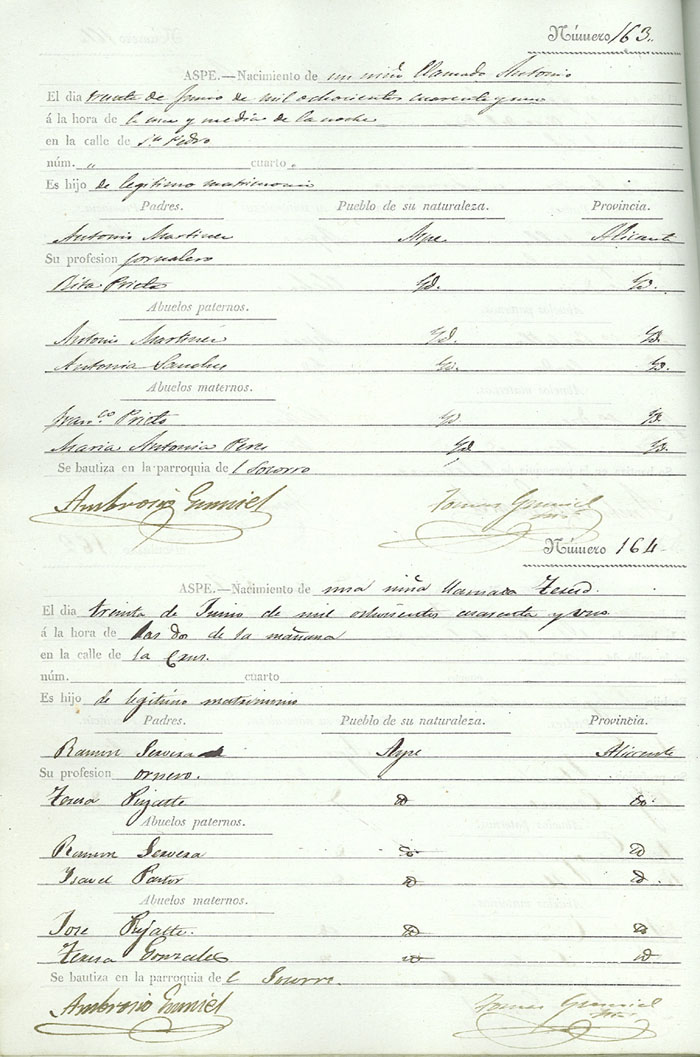 Número 163.
ASPE.—Nacimiento de un niño llamado Antonio
El dia treinta de Junio de mil ochocientos cuarenta y uno
á la hora de la una y media de la noche
en la calle de Sn Pedro
núm. „ cuarto „
Es hijo de legitimo matrimonio
Padres. Pueblo de su naturaleza. Provincia.
Antonio Martinez Aspe Alicante
Su profesion jornalero
Rita Prieto Yd. Yd.
Abuelos paternos.
Antonio Martinez Yd. Yd.
Antonia Sanchez Yd. Yd.
Abuelos maternos.
Franco Prieto Yd Yd.
Maria Antonia Peres Yd Yd.
Se bautiza en la parroquia de l Socorro
Ambrosio Tomas
Número 164
ASPE.—Nacimiento de una niña llamada Teresa.
El dia treinta de Junio de mil ochosientos cuarenta y uno
á la hora de las dos de la mañana
en la calle de la Crus.
núm. cuarto
Es hijo de legitimo matrimonio
Padres. Pueblo de su naturaleza. Provincia.
Ramon Servera Aspe Alicante
Su profesion ornero.
Teresa id id.
Abuelos paternos.
Ramon Servera id id
Isavel Pastor id id
Abuelos maternos.
Jose id id
Teresa Gonzales id id
Se bautiza en la parroquia de l Socorro.
Ambrosio Tomas